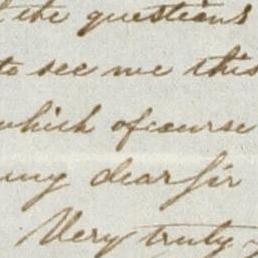 the questions
to see me this
which ofcourse
my dear Sir
Very truly